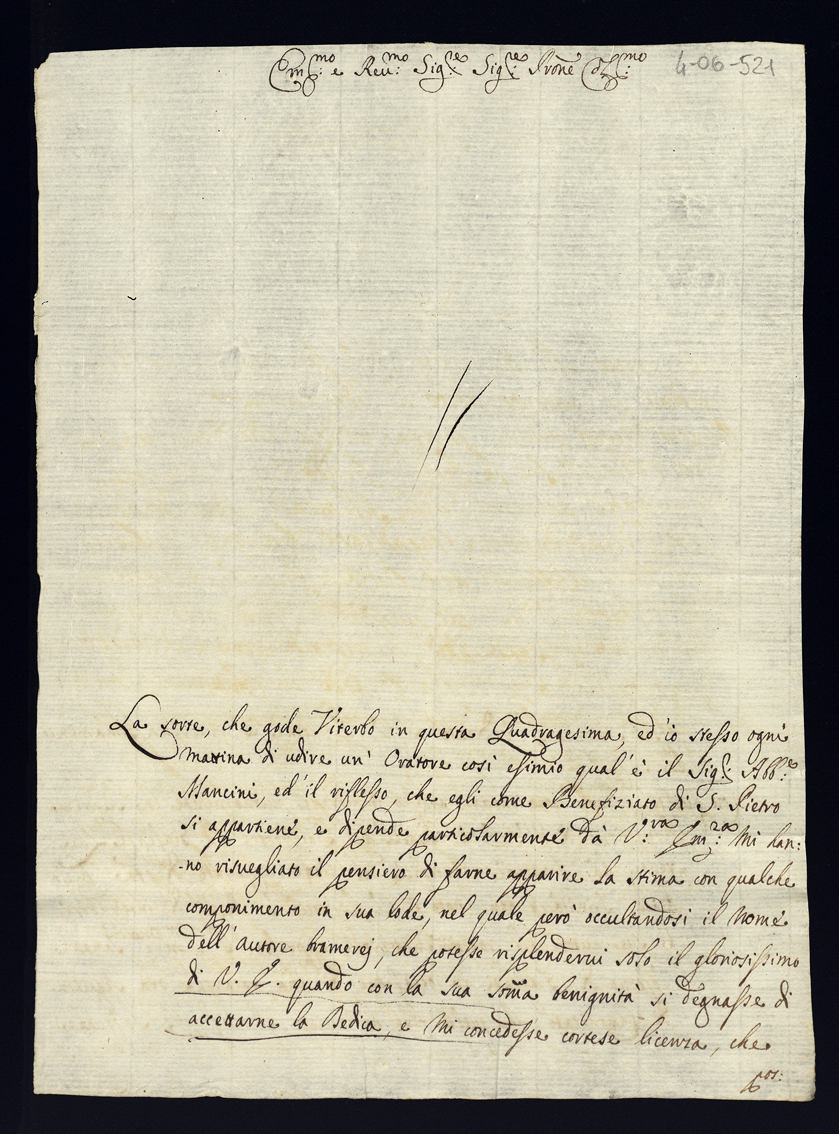 Em:mo e Reu:mo Sig:re Sig:re Prone Col:mo
4-06-521
La sorte, che gode Viterbo in questa Quadragesima, ed'io stesso ogni
mattina di udire un' Oratore così esimio qual'è il Sig:r Abb:e
Mancini, ed'il riflesso, che egli come Benefiziato di S. Pietro
si appartiene, e dipende particolarmente dà V:ra Em:za Mi han:
-no risuegliato il pensiero di farne apparire la stima con qualche
componimento in sua lode, nel quale però occultandosi il Nome
dell'Autore bramerej, che potesse risplenderui solo il gloriosissimo
di V. E. quando con la sua somma benignità si degnasse di
accettarne la Dedica, e Mi concedesse cortese licenza, che
pos: